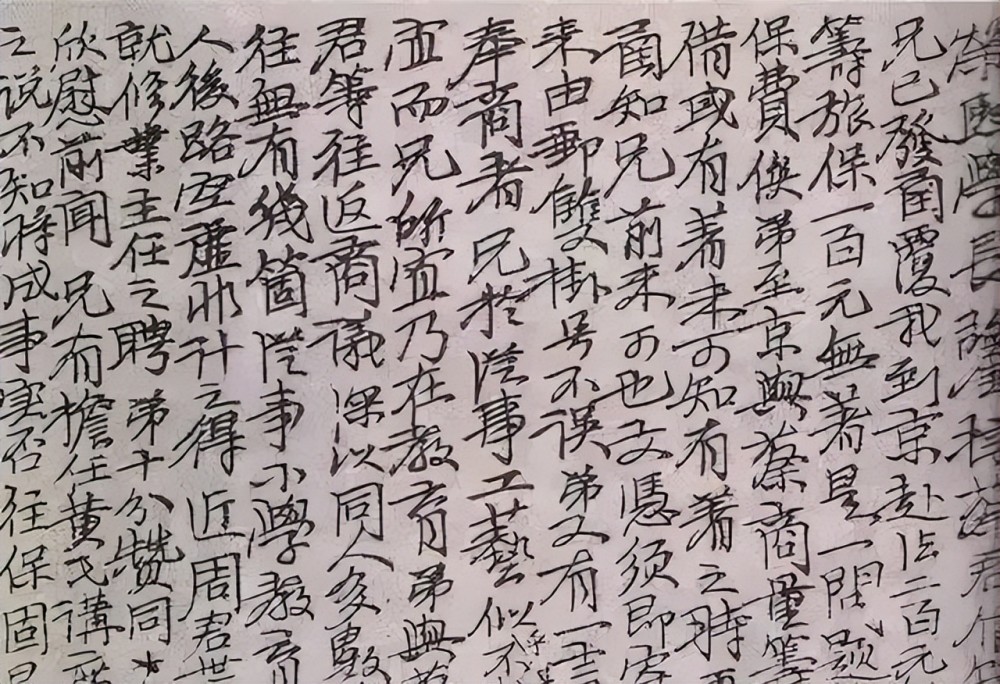 學長
兄已發函覆我到京赴法二百元
籌旅保一百元無著是一問題
保費俟弟至京與蔡商量籌
借或有著未可知有著之時
函知兄前來可也文憑須即寄
來由郵雙掛号不误弟又有一言
奉商者兄於從事工藝似乎不
宜而兄所宜乃在教育弟與蔡
君等往返商議深以同人多數
往無有幾箇從事小學教育
人後路空虛非计之得近周君世
就修業主任之聘弟十分贊同
欣慰前聞兄有擔任黃氏講
之说不知将成事实否往保固